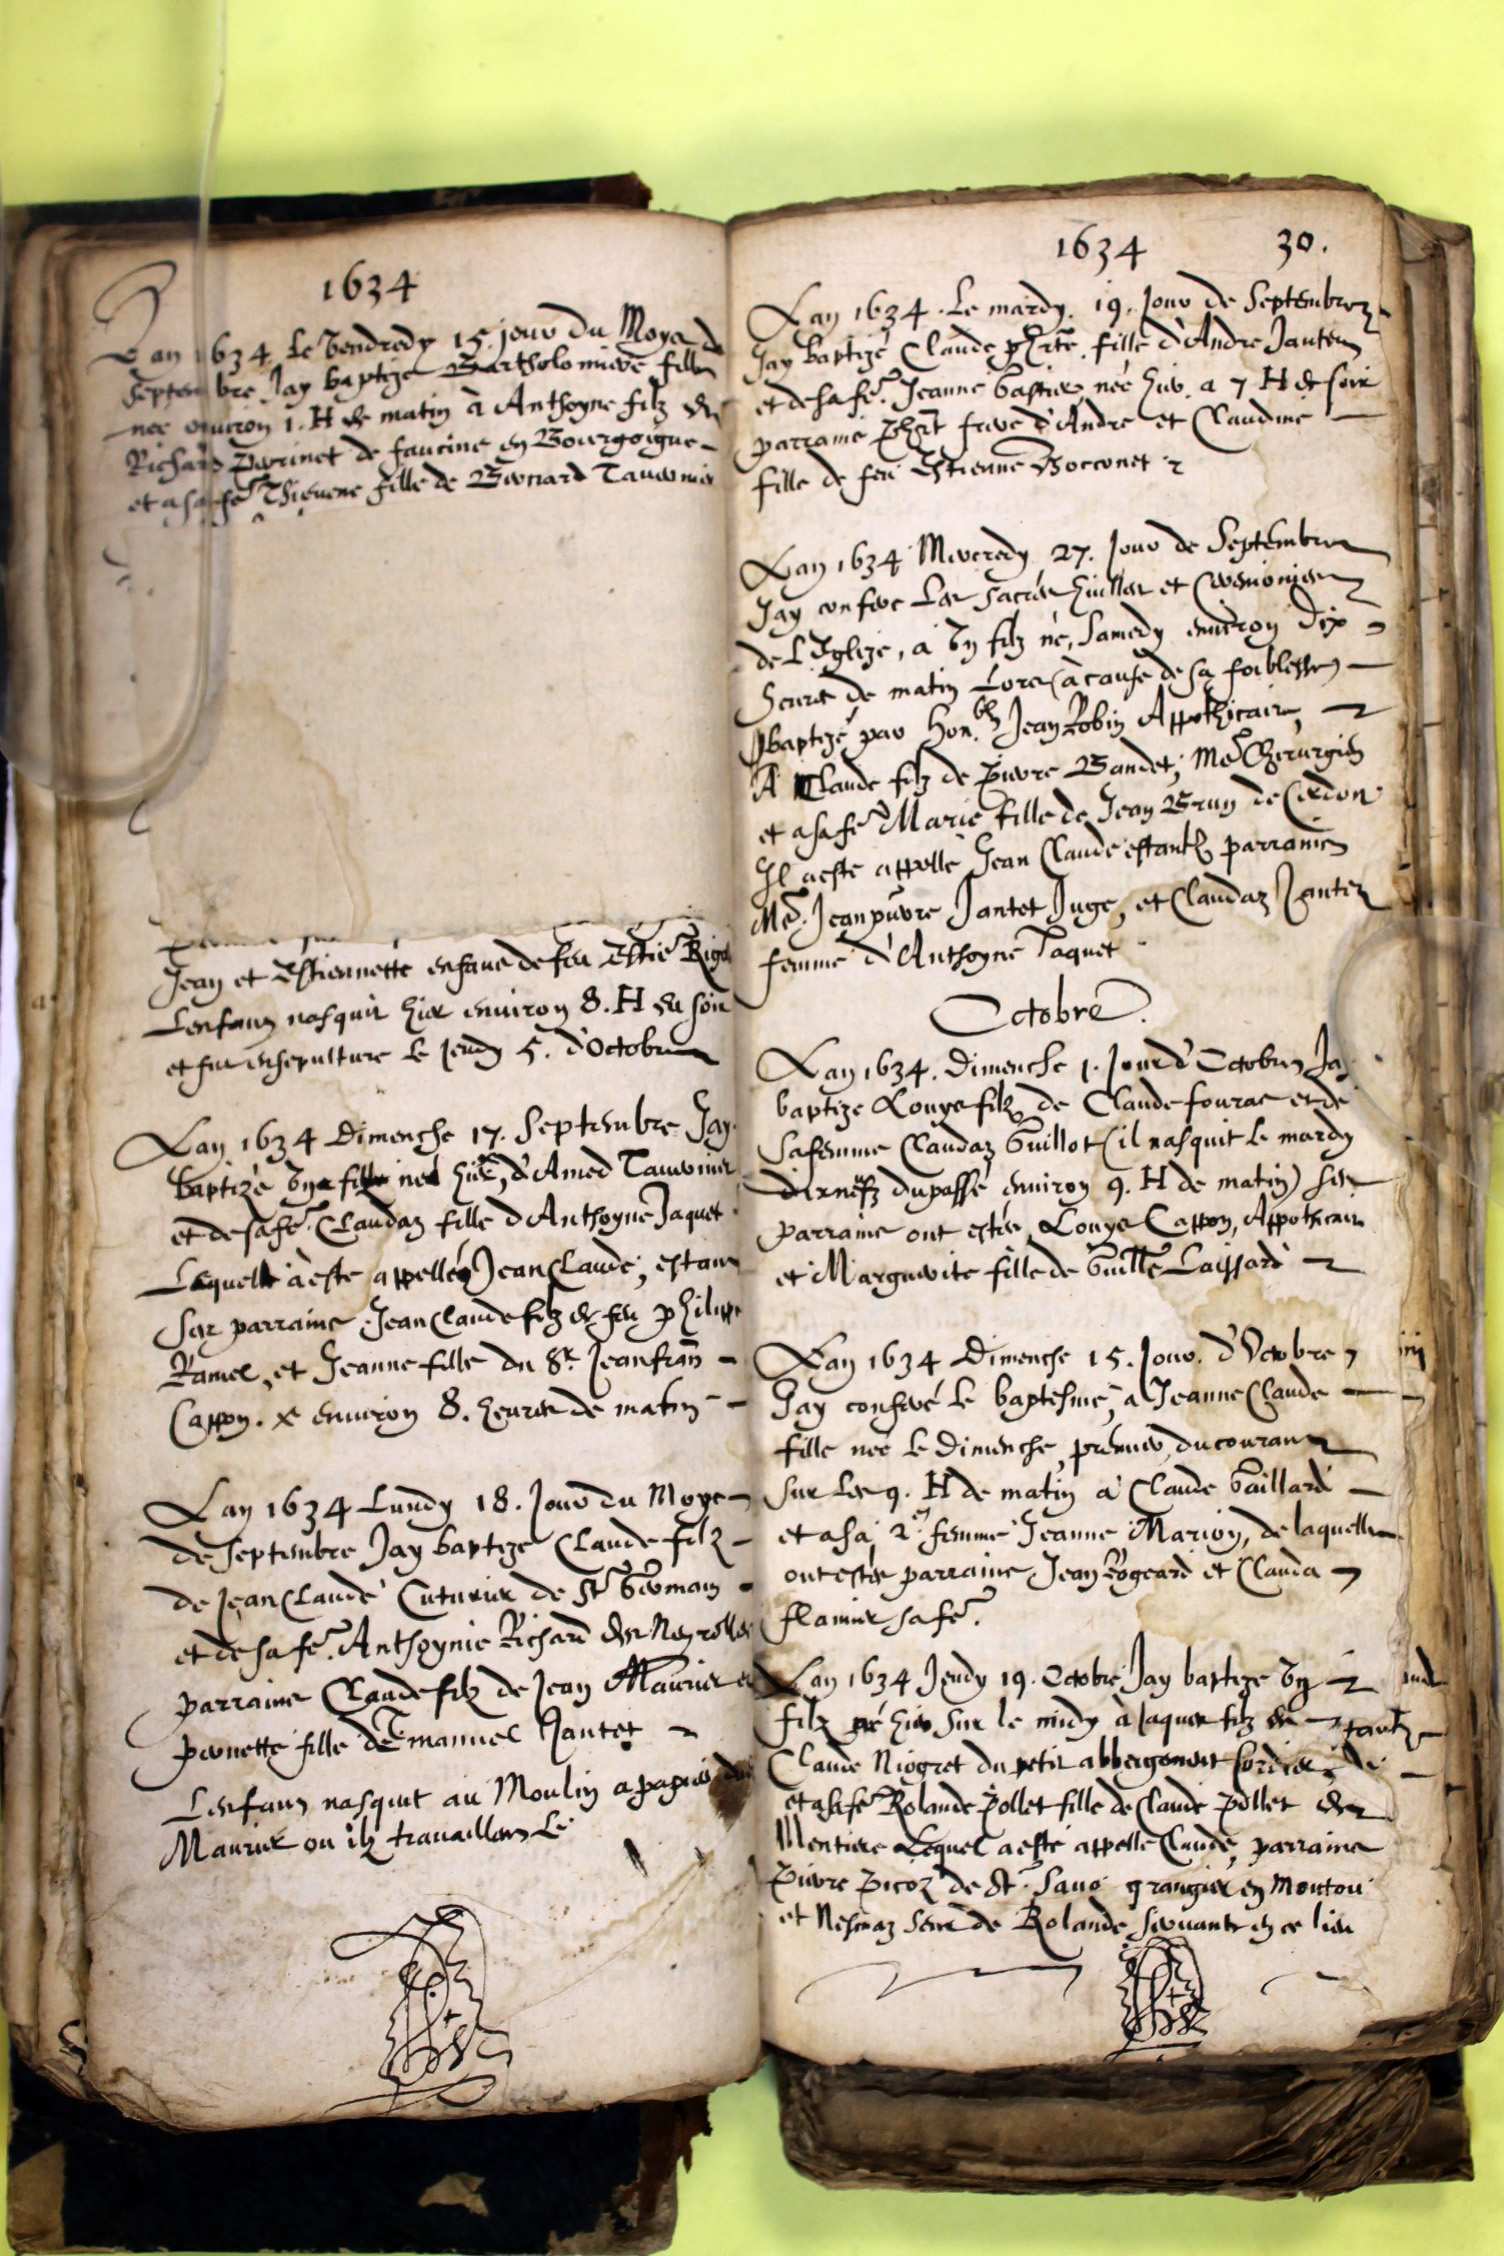 1634
Lan 1634 Le Vendredy 15. jour du Moys de
Septembre Jay baptize Bartholomiere fille
nee environ 1. H de matin à Anthoyne filz de
Richard Perrinet de faucine en Bourgoigne
et a sa fe Thievene fille de Bernard Tavernier
Jean et Estiennette enfans de feu Estie
Lenfant nasquit hier environ 8. H du soir
et fut ensepulture le jeudy 5. d'Octobre
Lan 1634 Dimenche 17. Septembre Jay
baptizè Vn filz né hier, d'Amed Tavernier
et de sa fe. Claudaz fille d'Anthoyne Jaquet
Lequel à este appellé Jean Claude, estans
ses parrains Jean Claude filz de feu Philippe
Ramel, et Jeanne fille du Sr. Jean fran
Cappon. X environ 8. heures de matin
Lan 1634 Lundy 18. Jour du Moys
de Septembre Jay baptize Claude filz
de Jean Claude Cuturier de St Germain
et de sa fe. Anthoynie Richard des Neyrolles
parrains Claude filz de Jean Maurier et
pernette fille de Emanuel Jantet
Lenfant nasquit au Moulin a papier du
Maurier ou ilz travaillent Le
1634 30.
Lan 1634. Le mardy. 19. Jour de Septembre
Jay baptizé Claude phrte. fille d'Andre Jantet
et de sa fe. Jeanne bastier, née hier. a 7 H de soir
parrains phrt frere d'Andre et Claudine
fille de feu Estienne Bocconet
Lan 1634 Mercredy 27. Jour de Septembre
Jay confere Les sacrés huilles et Ceremonies
de L'Eglize, à Vn filz né, Samedy environ Dix
heures de matin Lors (à cause de sa foiblesse)
baptizé par hon.ble Jean Robin Appothicaire,
A Claude filz de pierre Bandet, Me Chirurgien
et a sa fe Marie fille de Jean Brun de Cerdon
Il a este appellè Jean Claude estantz parrains
Me. Jean pierre Jantet Juge, et Claudaz Jantet
femme d'Anthoyne Jaquet
Octobre.
Lan 1634. Dimenche 1. Jour d'Octobre Jay
baptize Louys filz de Claude fourat et de
sa femme Claudaz Guillot (il nasquit le mardy
dixneufz du passé environ 9. H de matin) ses
parrains ont estés Louys Cappon, Appothicaire
et Marguerite fille de Guille Laissard
Lan 1634 Dimenche 15. Jour. d'Octobre
Jay conferé le baptesme, a Jeanne Claude
fille neé le Dimenche, premier, du courant
sur les 9. H de matin à Claude Gaillard
et a sa 2e femme Jeanne Marion, de laquelle
ont estés parrains Jean Rogeard et Clauda
flamier sa fe.
Lan 1634 Jeudy 19. Octobre Jay baptize Vn
filz né hier sur le midy à Jaques filz de
Claude Niogret du petit abbergement Cordier
et a sa fe Rolande Pollet fille de Claude Pollet des
Mentieres Lequel a esté appellé Claude, parrains
Pierre Picoz de St. Sauo grangier en Montou
et Nesmaz seur de Rolande, servante en ce lieu